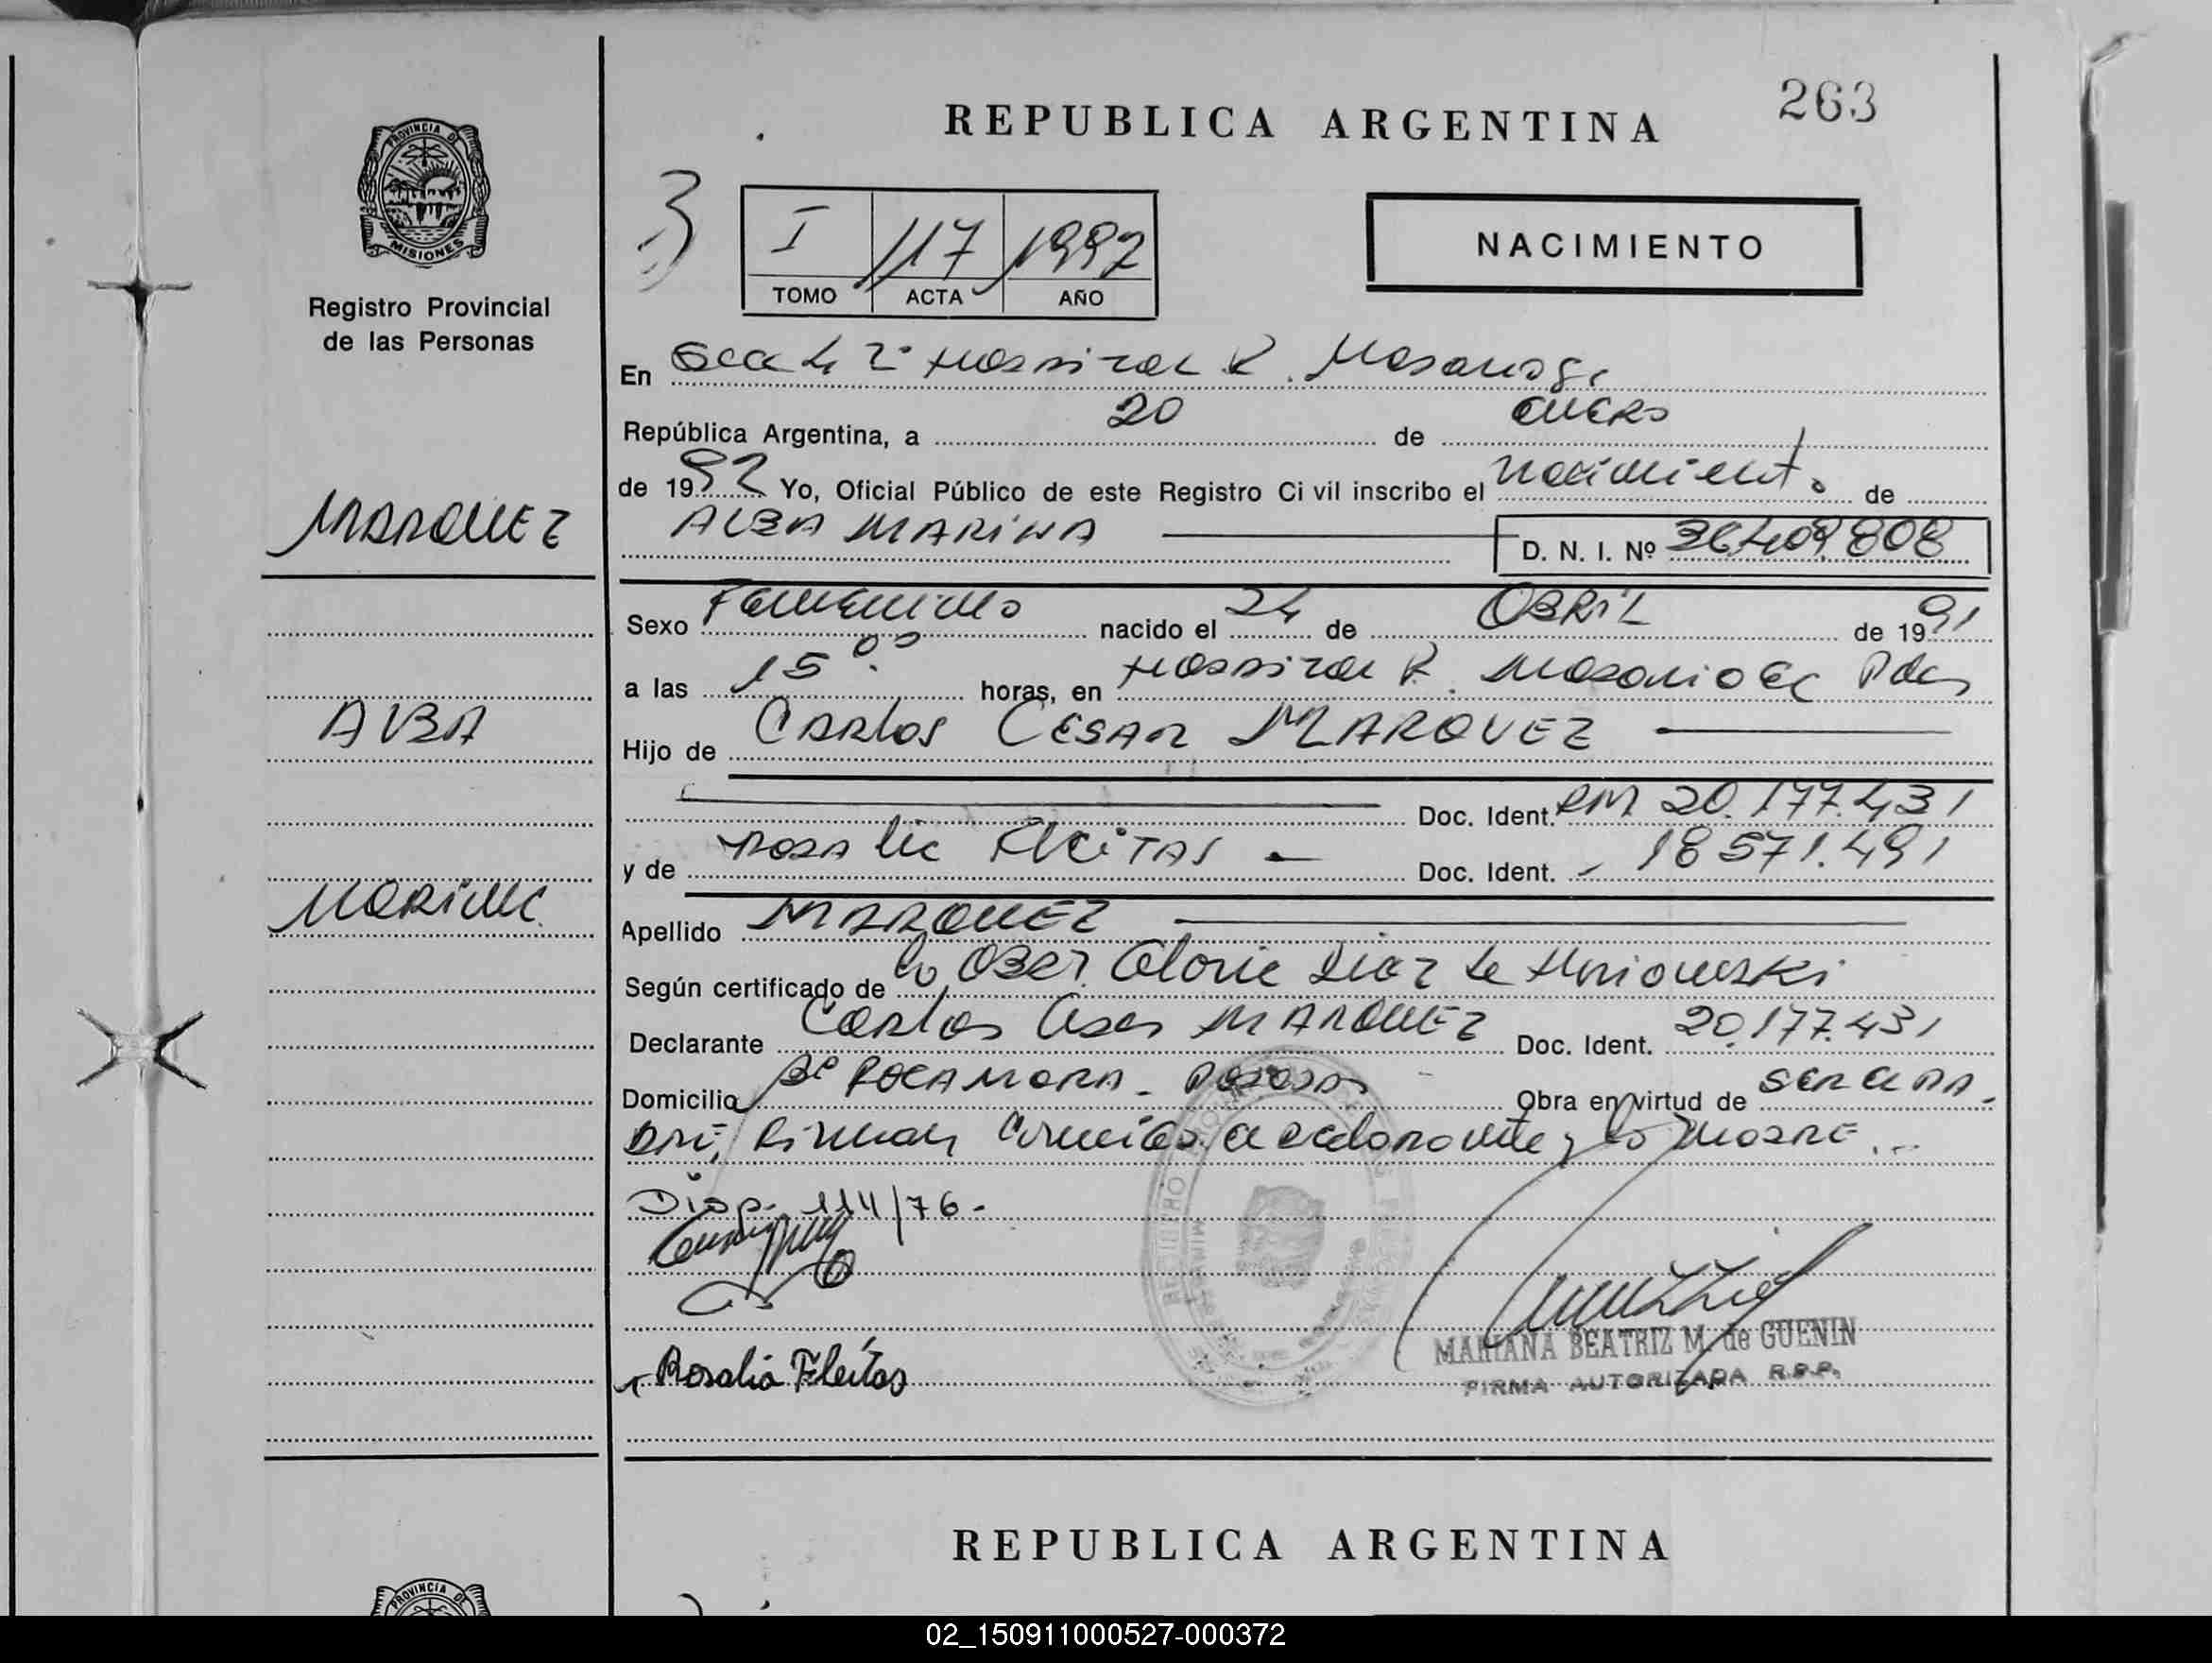 263
REPUBLICA ARGENTINA
PROVINCIA DE
MISIONES
Registro Provincial
de las Personas
I 117 1992
TOMO ACTA AÑO
NACIMIENTO
En 2º Hospital R.
República Argentina, a 20 de enero
de 1992 Yo, Oficial Público de este Registro Civil inscribo el nacimiento de
MARQUEZ
ALBA MARINA
D. N. I. Nº 36.409.808
Sexo Femenino nacido el 24 de ABRIL de 1991
a las 15 00 horas, en Hospital R. Pdas
ALBA
Hijo de CARLOS CESAR MARQUEZ
Doc. Ident. DM 20.177.431
y de Rosalia FLEITAS Doc. Ident. 18571.491
MARINA
Apellido MARQUEZ
Según certificado de la Obst. Gloria Diaz de
Declarante Carlos Cesar MARQUEZ Doc. Ident. 20.177.431
Domicilio Bº ROCAMORA - Posadas Obra en virtud de
DNI, Firman el declarante y la MADRE...
Disp. 114/76.-
Rosalia Fleitas
MARIANA BEATRIZ M. de GUENIN
FIRMA AUTORIZADA R.P.P.
REPUBLICA ARGENTINA
PROVINCIA DE
02_150911000527-000372